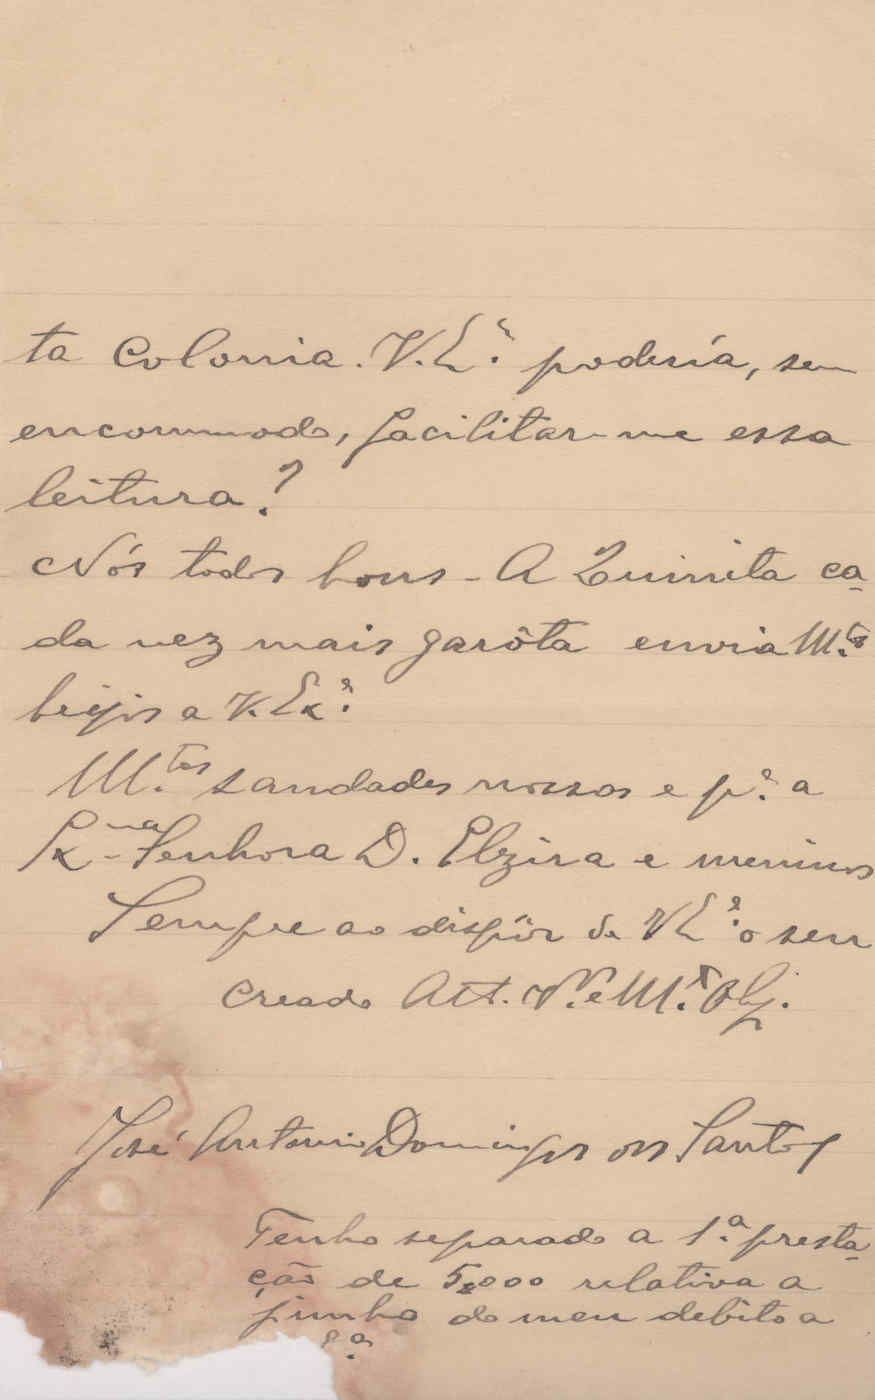 ta Colonia. V. Eª. podería, sem
encommodo, facilitar-me essa
leitura?
Nós todos bons - A Quinita ca-
da vez mais garôta envia M.tos
beijos a V. Exª.
M.tas saudades nossas e pª. a
Exma Senhora D. Elzira e meninos
Sempre ao dispôr de V Eª. o seu
creado Att. Vº. e M.to Obg.
José Antonio Domingos dos Santos
Tenho separado a 1.ª presta-
ção de 5,000 relativa a
junho do meu debito a
Eª.